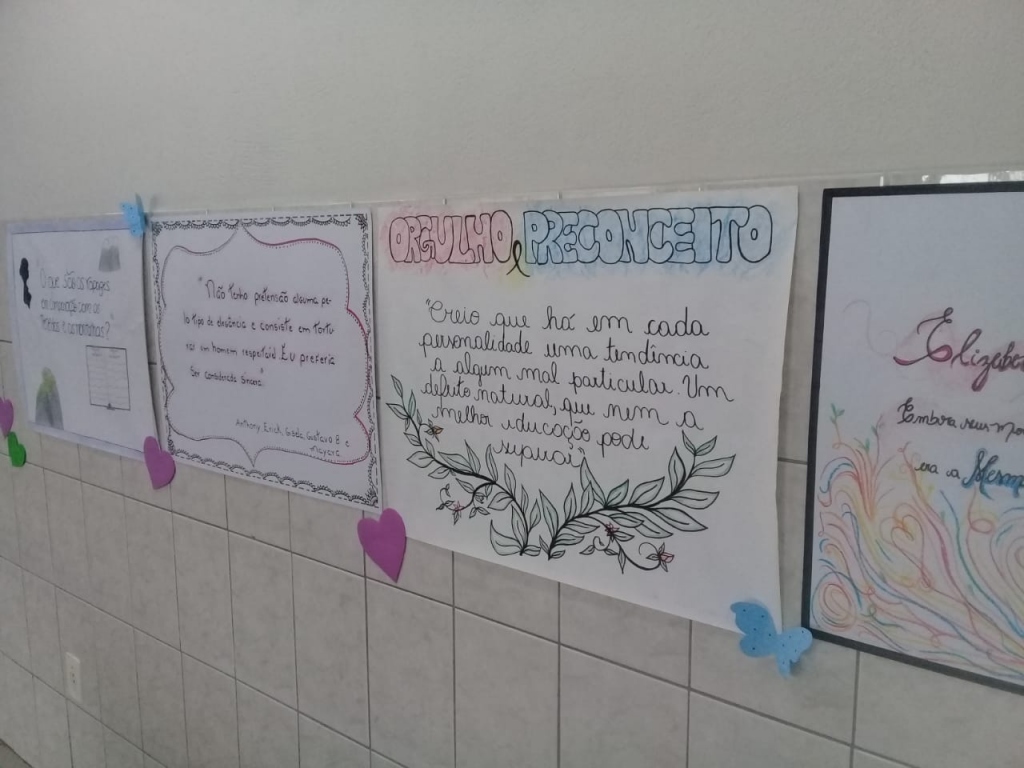 "O que são os rapazes
em comparação com as
rochas e montanhas?"
"Não tenho pretensão alguma pe-
lo tipo de elegância e consiste em tortu-
rar um homem respeitável. Eu preferia
ser considerada sincera."
Anthony, Erick, Giada, Gustavo B e
Mayara
ORGULHO e PRECONCEITO
"Creio que há em cada
personalidade uma tendência
a algum mal particular. Um
defeito natural, que nem a
melhor educação pode
supuai"
Elizabe
Embora seus mo
era a Mesma